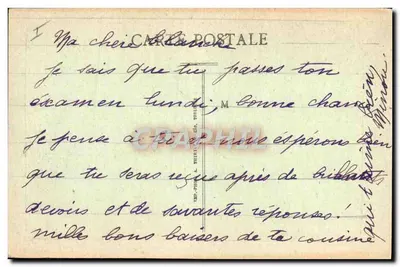 I
CARTE POSTALE
Ma chère Blanche
Je sais que tu passes ton
éxamen lundi, bonne chance
M
je pense à toi et nous espérons bien
que tu seras reçue après de brillants
devoirs et de savantes réponses!
milles bons baisers de ta cousine
qui t'aime bien,